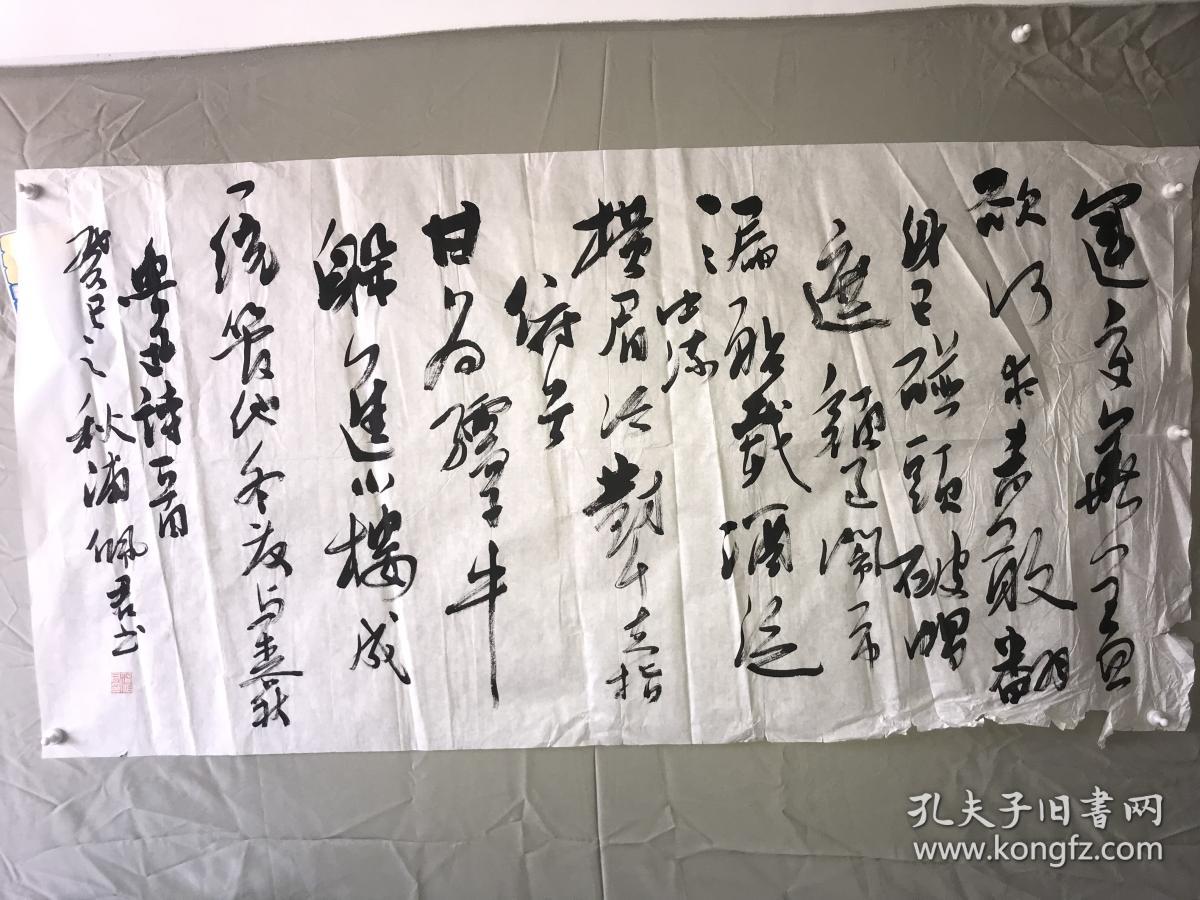 運交華蓋
欲何求未敢翻
身已碰頭破帽
遮顏過鬧市
漏船載酒泛
中流
横眉冷對千夫指
俯首
甘为孺子牛
躲進小樓成
一統管他冬夏与春秋
魯迅詩一首
癸巳之秋浦佩君书
孔夫子旧书网
www.kongfz.com